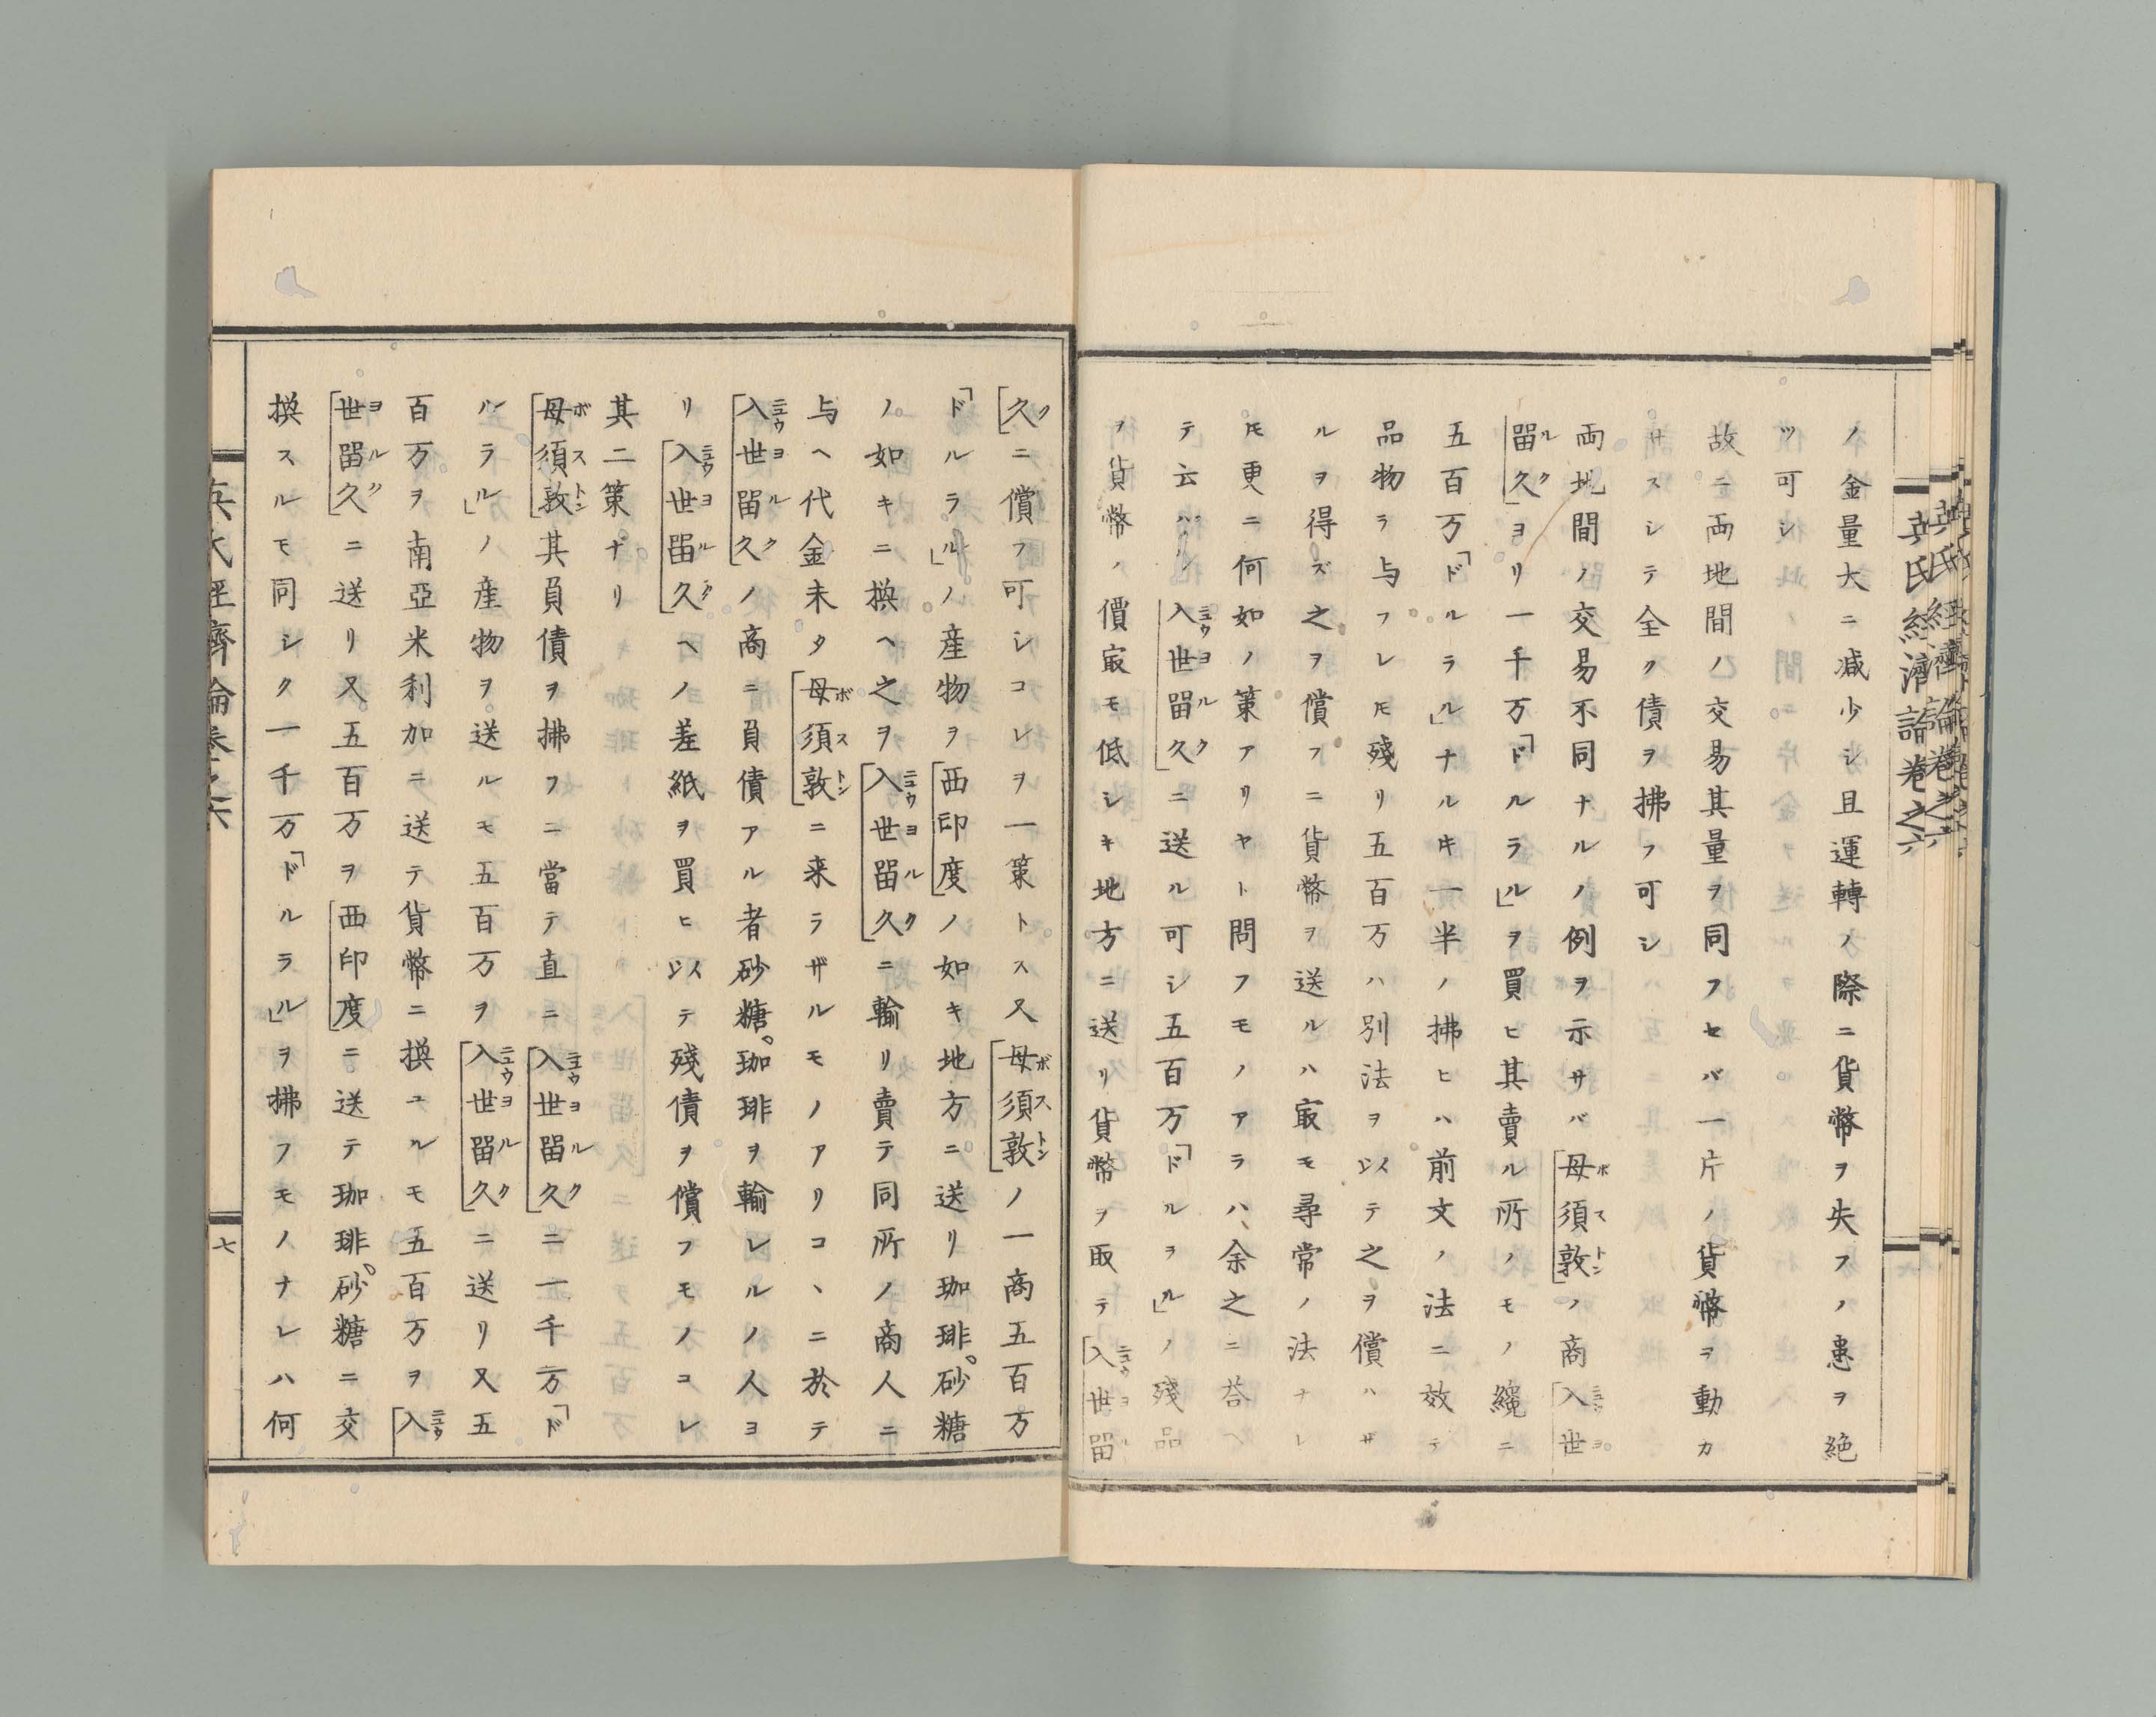 ノ金量大ニ減少シ且運轉ノ際ニ貨幣ヲ失フノ患ヲ絶
ツ可シ
故ニ両地間ノ交易其量ヲ同フセバ一片ノ貨幣ヲ動カ
サスシテ全ク債ヲ拂フ可シ
両地間ノ交易不同ナルノ例ヲ示サバ母須敦ノ商入世
留久ヨリ一千万「ドルラル」ヲ買ヒ其賣ル所ノモノ纔ニ
五百万「ドルラル」ナルキ一半ノ拂ヒハ前文ノ法ニ效テ
品物ヲ与フレ𪜈殘リ五百万ハ別法ヲ以テ之ヲ償ハザ
ルヲ得ズ之ヲ償フニ貨幣ヲ送ルハ㝡モ尋常ノ法ナレ
𪜈更ニ何如ノ策アリヤト問フモノアラハ、余之ニ荅ヘ
テ云ハン入世留久ニ送ル可シ五百万「ドルラル」ノ殘品
ヲ貨幣ノ價㝡モ低シキ地方ニ送リ貨幣ヲ取テ入世留
久ニ償フ可シコレヲ一策トス又母須敦ノ一商五百万
「ドルラル」ノ産物ヲ西印度ノ如キ地方ニ送リ珈琲。砂糖
ノ如キニ換ヘ之ヲ入世留久ニ輸リ賣テ同所ノ商人ニ
与ヘ代金未タ母須敦ニ来ラザルモノアリコヽニ於テ
入世留久ノ商ニ負債アル者砂糖。珈琲ヲ輸レルノ人ヨ
リ入世留久ヘノ差紙ヲ買ヒ以テ殘債ヲ償フモノコレ
其二策ナリ
母須敦其負債ヲ拂フニ當テ直ニ入世留久ニ一千万「ド
ルラル」ノ産物ヲ送ルモ五百万ヲ入世留久ニ送リ又五
百万ヲ南亞米利加ニ送テ貨幣ニ換ユルモ五百万ヲ入
世留久ニ送リ又五百万ヲ西印度ニ送テ珈琲。砂糖ニ交
換スルモ同シク一千万「ドルラル」ヲ拂フモノナレハ何
英氏經濟論卷之六
七